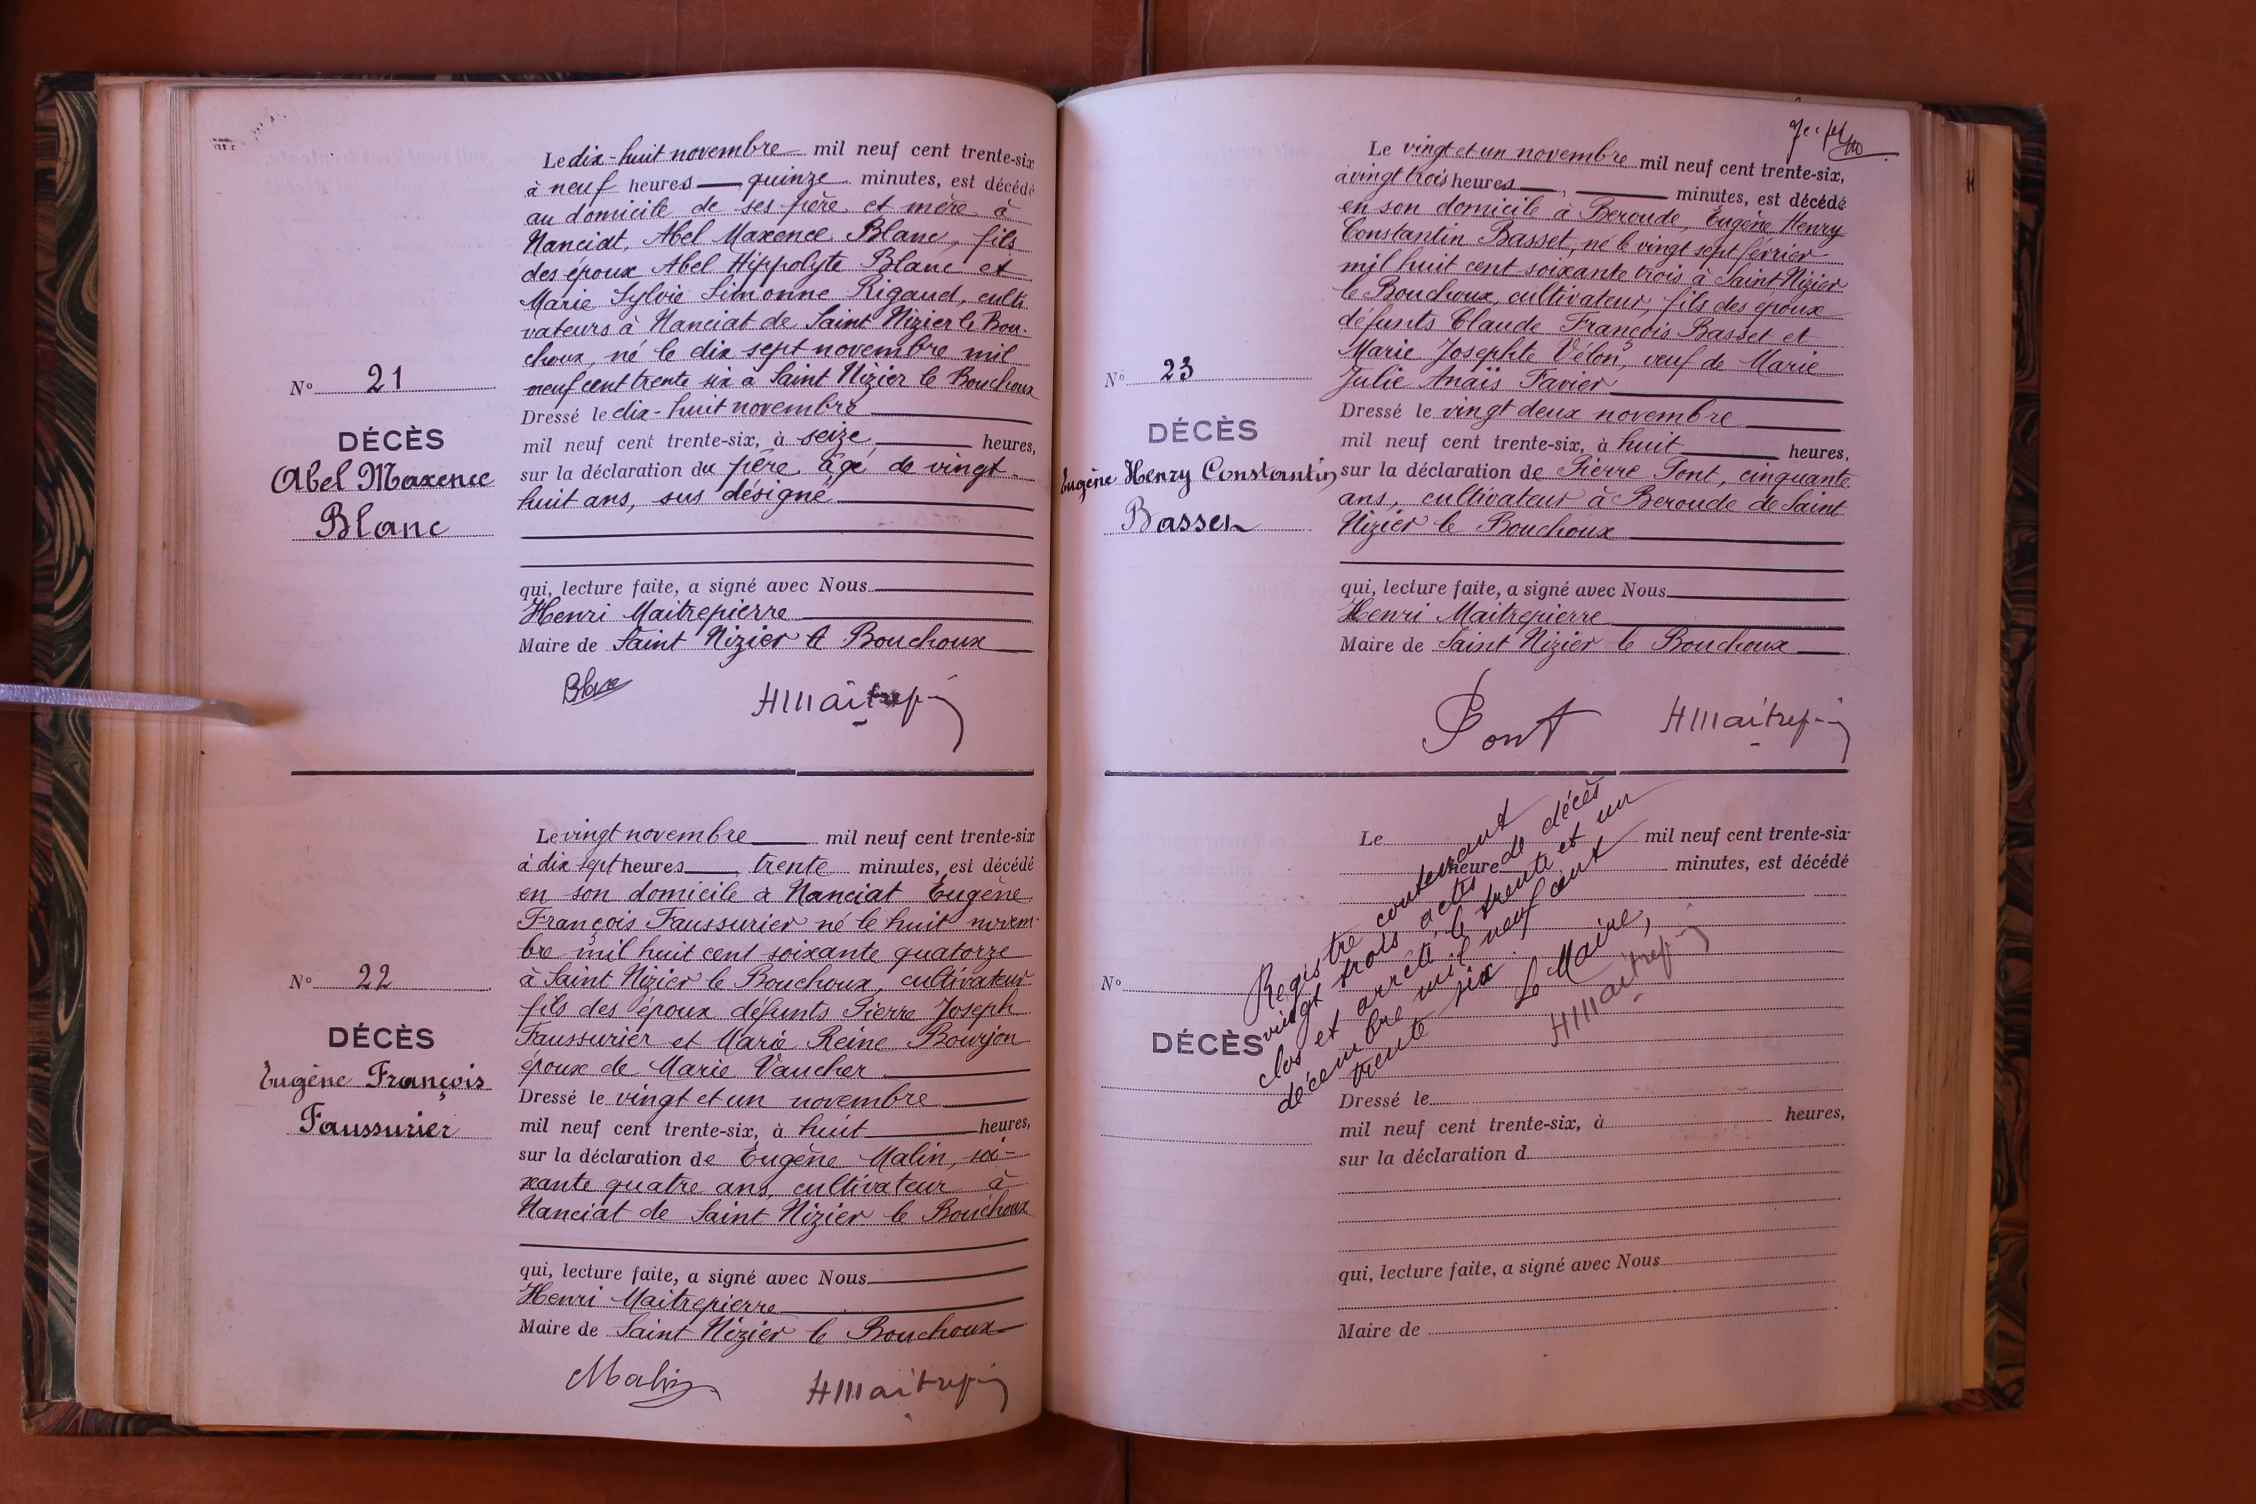 Le dix-huit novembre mil neuf cent trente-six
à neuf heures quinze minutes, est décédé
au domicile de ses père et mère à
Nanciat, Abel Maxence Blanc, fils
des époux Abel Hippolyte Blanc et
Marie Sylvie Simonne Rigaud, culti
vateurs à Nanciat de Saint Nizier le Bou-
choux, né le dix sept novembre mil
neuf cent trente six à Saint Nizier le Bouchoux
Dressé le dix-huit novembre
mil neuf cent trente-six, à seize heures,
sur la déclaration du père âgé de vingt-
huit ans, sus désigné
qui, lecture faite, a signé avec Nous
Henri Maitrepierre
Maire de Saint Nizier le Bouchoux
N° 21
DÉCÈS
Abel Maxence
Blanc
Blanc HMaitrepi
Le vingt novembre mil neuf cent trente-six
à dix sept heures, trente minutes, est décédé
en son domicile à Nanciat Eugène
François Faussurier né le huit novem-
bre mil huit cent soixante quatorze
à Saint Nizier le Bouchoux, cultivateur
fils des époux défunts Pierre Joseph
Faussurier et Marie Reine Bourjon
époux de Marie Vaucher
Dressé le vingt et un novembre
mil neuf cent trente-six, à huit heures,
sur la déclaration de Eugène Malin, soi-
xante quatre ans, cultivateur à
Nanciat de Saint Nizier le Bouchoux
qui, lecture faite, a signé avec Nous
Henri Maitrepierre
Maire de Saint Nizier le Bouchoux
N° 22
DÉCÈS
Eugène François
Faussurier
Malin HMaitrepi
Le vingt et un novembre mil neuf cent trente-six,
à vingt trois heures, minutes, est décédé
en son domicile à Beroude, Eugène Henry
Constantin Basset, né le vingt sept février
mil huit cent soixante trois à Saint Nizier
le Bouchoux, cultivateur, fils des époux
défunts Claude François Basset et
Marie Josephte Vélon, veuf de Marie
Julie Anaïs Favier
Dressé le vingt deux novembre
mil neuf cent trente-six, à huit heures,
sur la déclaration de Pierre Pont, cinquante
ans, cultivateur à Beroude de Saint
Nizier le Bouchoux
qui, lecture faite, a signé avec Nous
Henri Maitrepierre
Maire de Saint Nizier le Bouchoux
N° 23
DÉCÈS
Eugène Henry Constantin
Basset
Pont HMaitrepi
Le mil neuf cent trente-six
heure minutes, est décédé
N°
DÉCÈS
Registre contenant
vingt trois actes de décès
clos et arrêté le trente et un
décembre mil neuf cent
trente six.
Le Maire,
HMaitrepi
Dressé le
mil neuf cent trente-six, à heures,
sur la déclaration d
qui, lecture faite, a signé avec Nous
Maire de